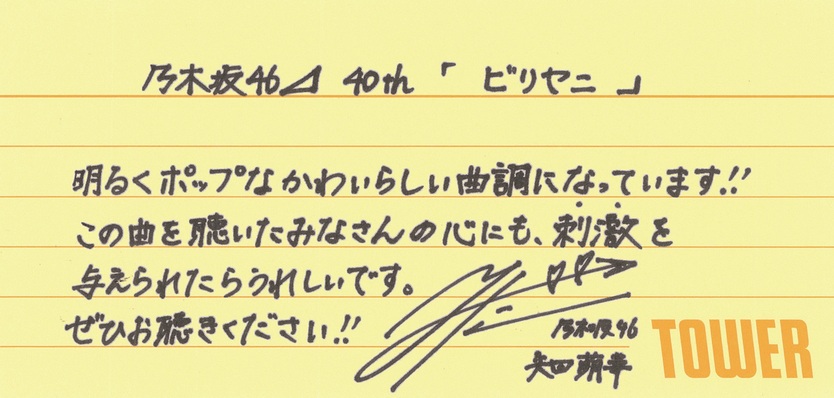 乃木坂46⊿ 40th 「 ビリヤニ 」
明るくポップなかわいらしい曲調になっています!!
この曲を聴いたみなさんの心にも、刺激を
与えられたらうれしいです。
ぜひお聴きください!!
乃木坂46
矢田萌華
TOWER